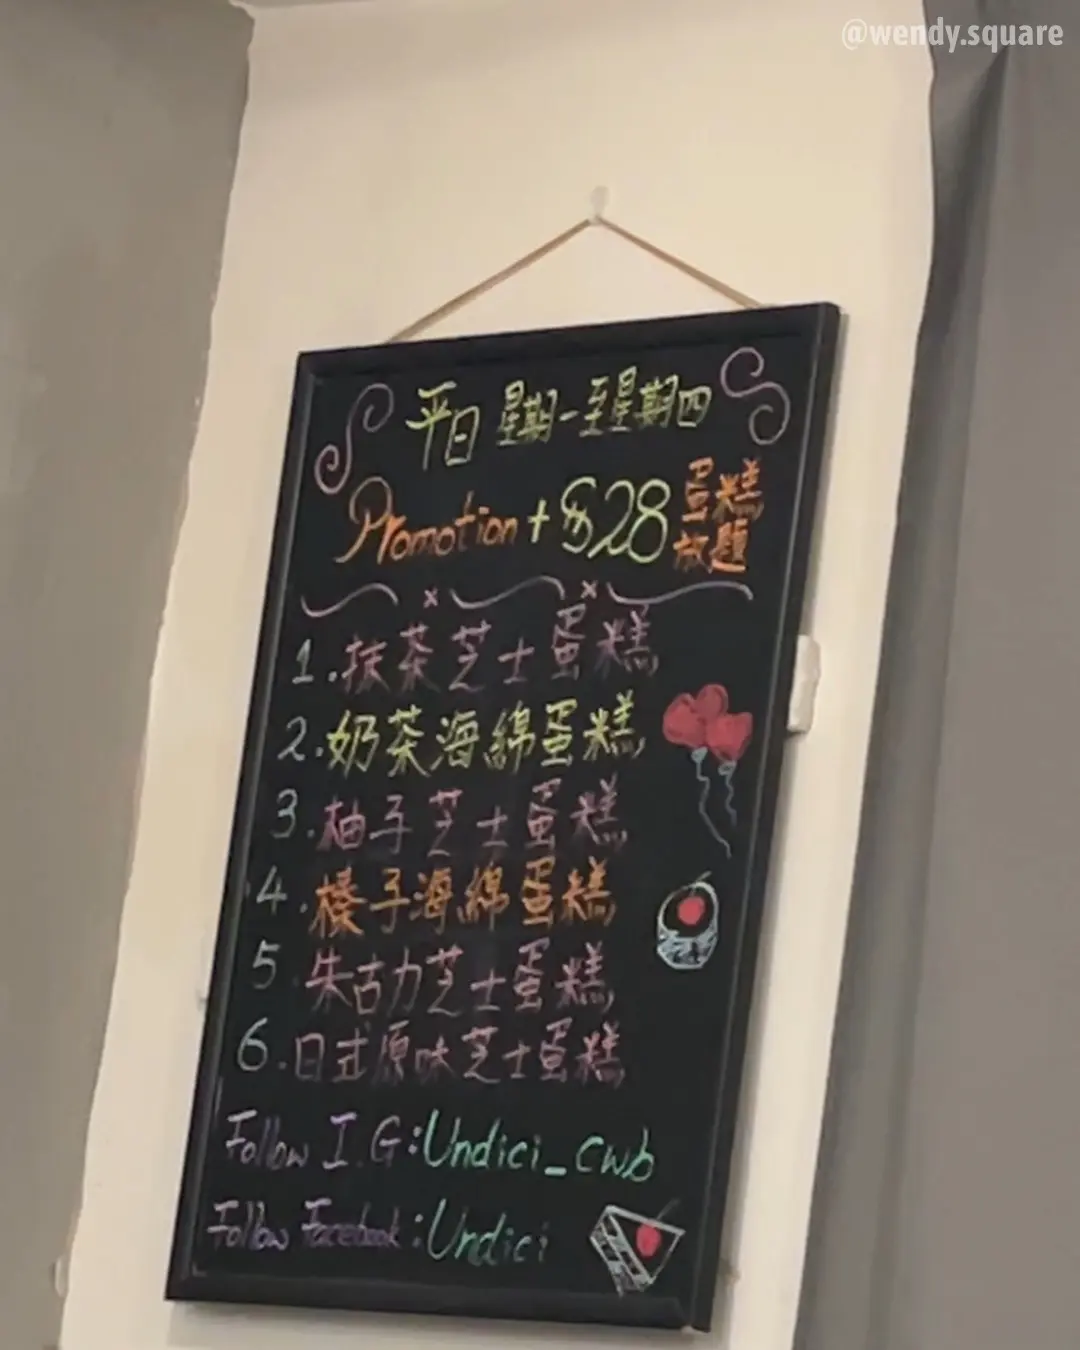 @wendy.square
平日 星期一至星期四
Promotion + $28 蛋糕放題
1. 抹茶芝士蛋糕
2. 奶茶海綿蛋糕
3. 柚子芝士蛋糕
4. 榛子海綿蛋糕
5. 朱古力芝士蛋糕
6. 日式原味芝士蛋糕
Follow I.G: Undici_cwb
Follow Facebook: Undici